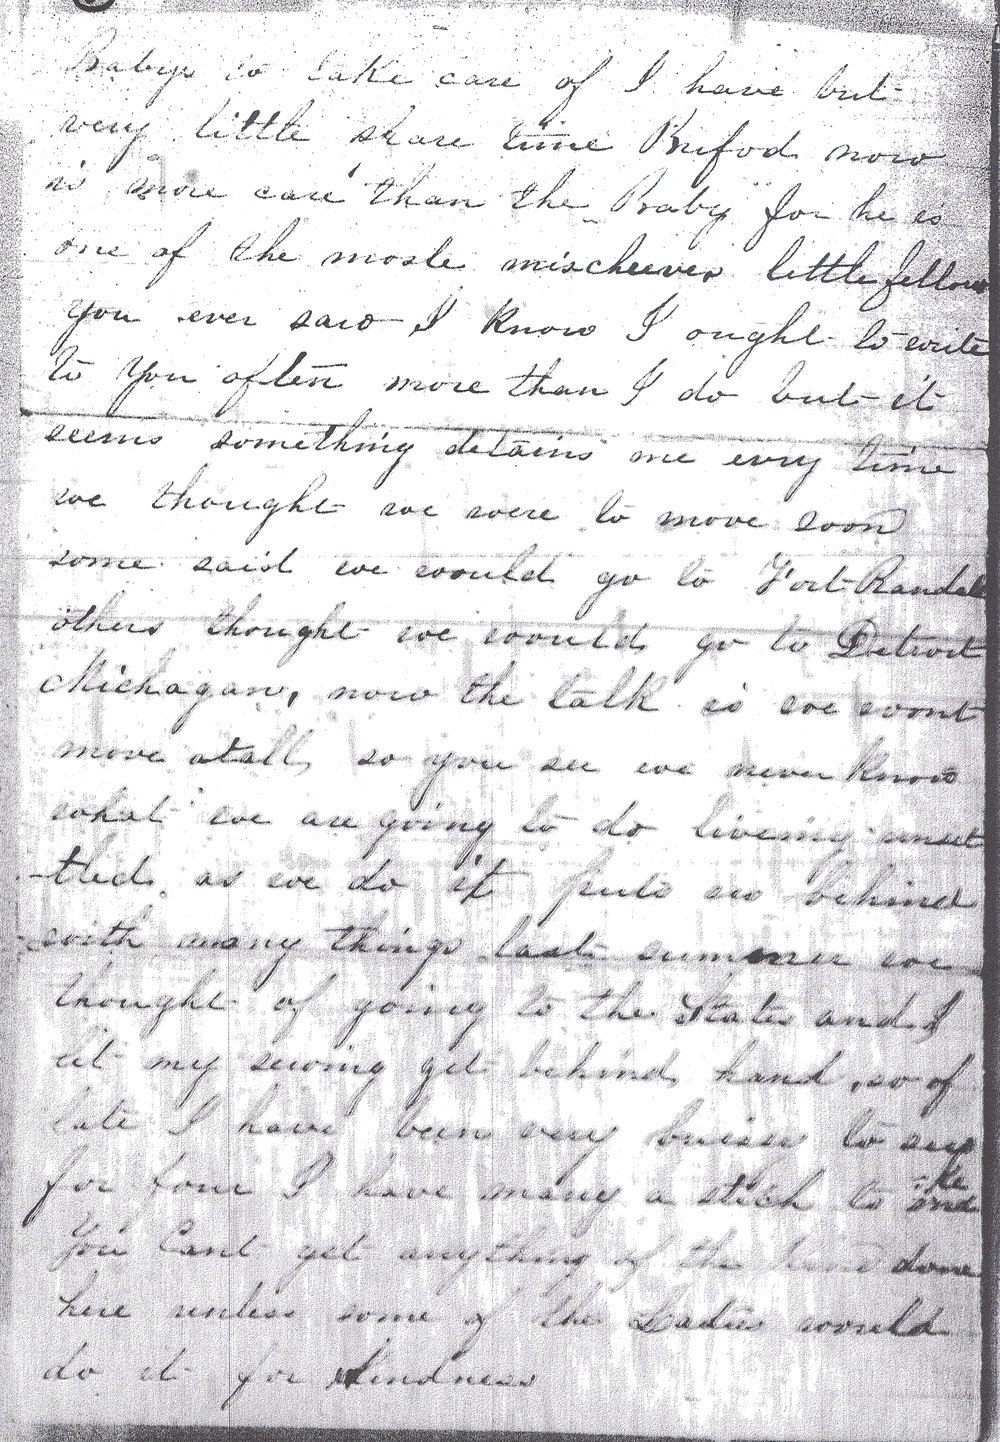 Babys to take care of I have but
very little share time Bufod now
is more care than the Baby for he is
one of the moste mischeeves little fellows
You ever saw I know I ought to write
to You often more than I do but it
seems something detains me evry time
we thought we were to move soon
some said we would go to Fort Randall
others thought we would go to Detroit
Michagan, now the talk is we wont
move atall, so you see we never know
what we are going to do liveing unset
-tled as we do it puts us behind
with many things last summer we
thought of going to the States and I
let my sewing get behind hand, so of
late I have been very buisey to sew
for four I have many a stich to make
You Cant get anything of the kind done
here unless some of the Ladies would
do it for kindness